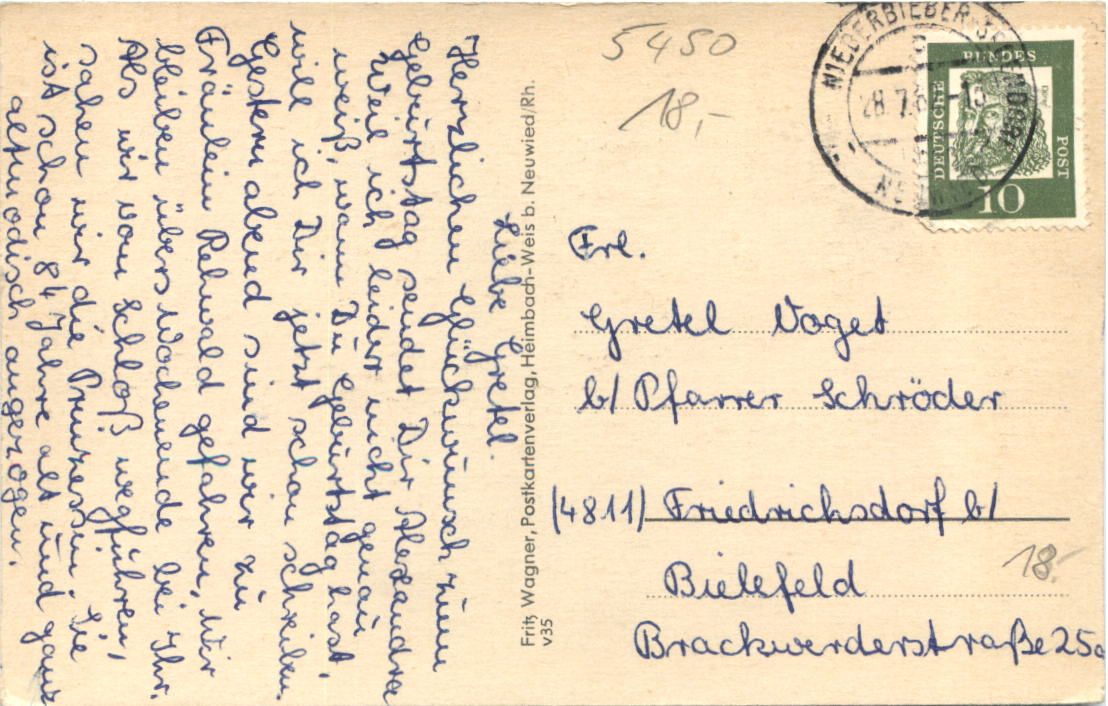 Liebe Gretel.
Herzlichen Glückwunsch zum
Geburtstag sendet Dir Alexandra
Weil ich leider nicht genau
weiß, wann Du Geburtstag hast,
will ich Dir jetzt schon schreiben.
Gestern abend sind wir zu
Fräulein Rehwald gefahren, Wir
bleiben übers Wochenende bei Ihr.
Als wir vom Schloß wegführen,
sahen wir die Prinzessin. Sie
ist schon 84 Jahre alt und ganz
altmodisch angezogen.
Fritz Wagner, Postkartenverlag, Heimbach-Weis b. Neuwied/Rh.
v35
5450
18,-
NIEDERBIEBER-SEGENDORF
28.7.6
DEUTSCHE
BUNDES
POST
10
Frl.
Gretel Voget
b/ Pfarrer Schröder
(4811) Friedrichsdorf b/
Bielefeld
18.-
Brackwerderstraße 25a